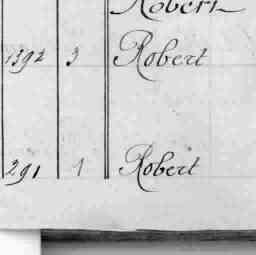 Robert
1392 3 Robert
291 1 Robert